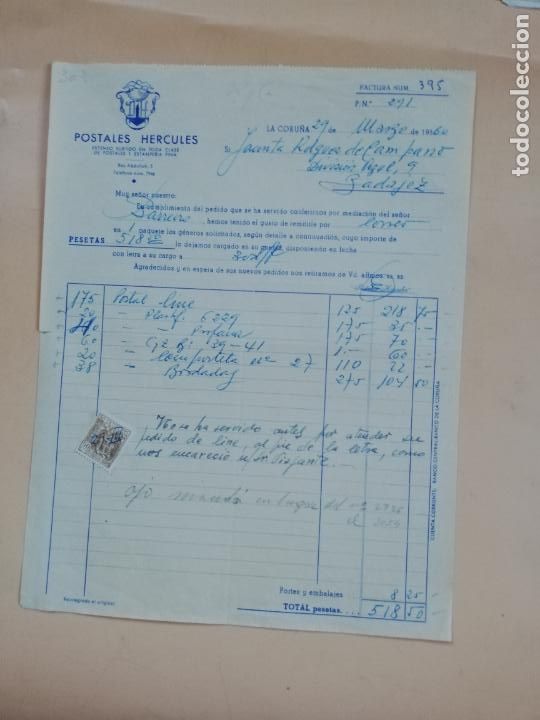 FACTURA NUM. 395
P.N.º 271
POSTALES HERCULES
EXTENSO SURTIDO EN TODA CLASE
DE POSTALES Y ESTAMPERIA FINA
Teléfono núm.
LA CORUÑA 29 de Marzo de 1960
Sr.
División Azul, 9
Badajoz
Muy señor nuestro:
En cumplimiento del pedido que se ha servido conferirnos por mediación del señor
Barreiro, hemos tenido el gusto de remitirle por Correo
en 1 paquete los géneros solicitados, según detalle a continuación, cuyo importe de
PESETAS 518,50 le dejamos cargado en su cuenta, disponiendo en fecha
con letra a su cargo a 30 d/f
Agradecidos y en espera de sus nuevos pedidos nos reiteramos de Vd. afmos. ss. ss
175 Postal line 125 218 75
20 — Plastf. 6229 175 35 -
40 — Profana 175 70
60 — 29-41 1.- 60
20 — Compostela nº 27 110 22
38 — Bordadas 275 104 50
No se ha servido antes por atender su
pedido de line, al pie de la letra, como
nos encareció
ojo en lugar del nº
el
Portes y embalajes 8 25
TOTAL pesetas.... 518 50
Reintegrado el original
CUENTA CORRIENTE: BANCO CENTRAL-BANCO DE LA CORUÑA
todocoleccion